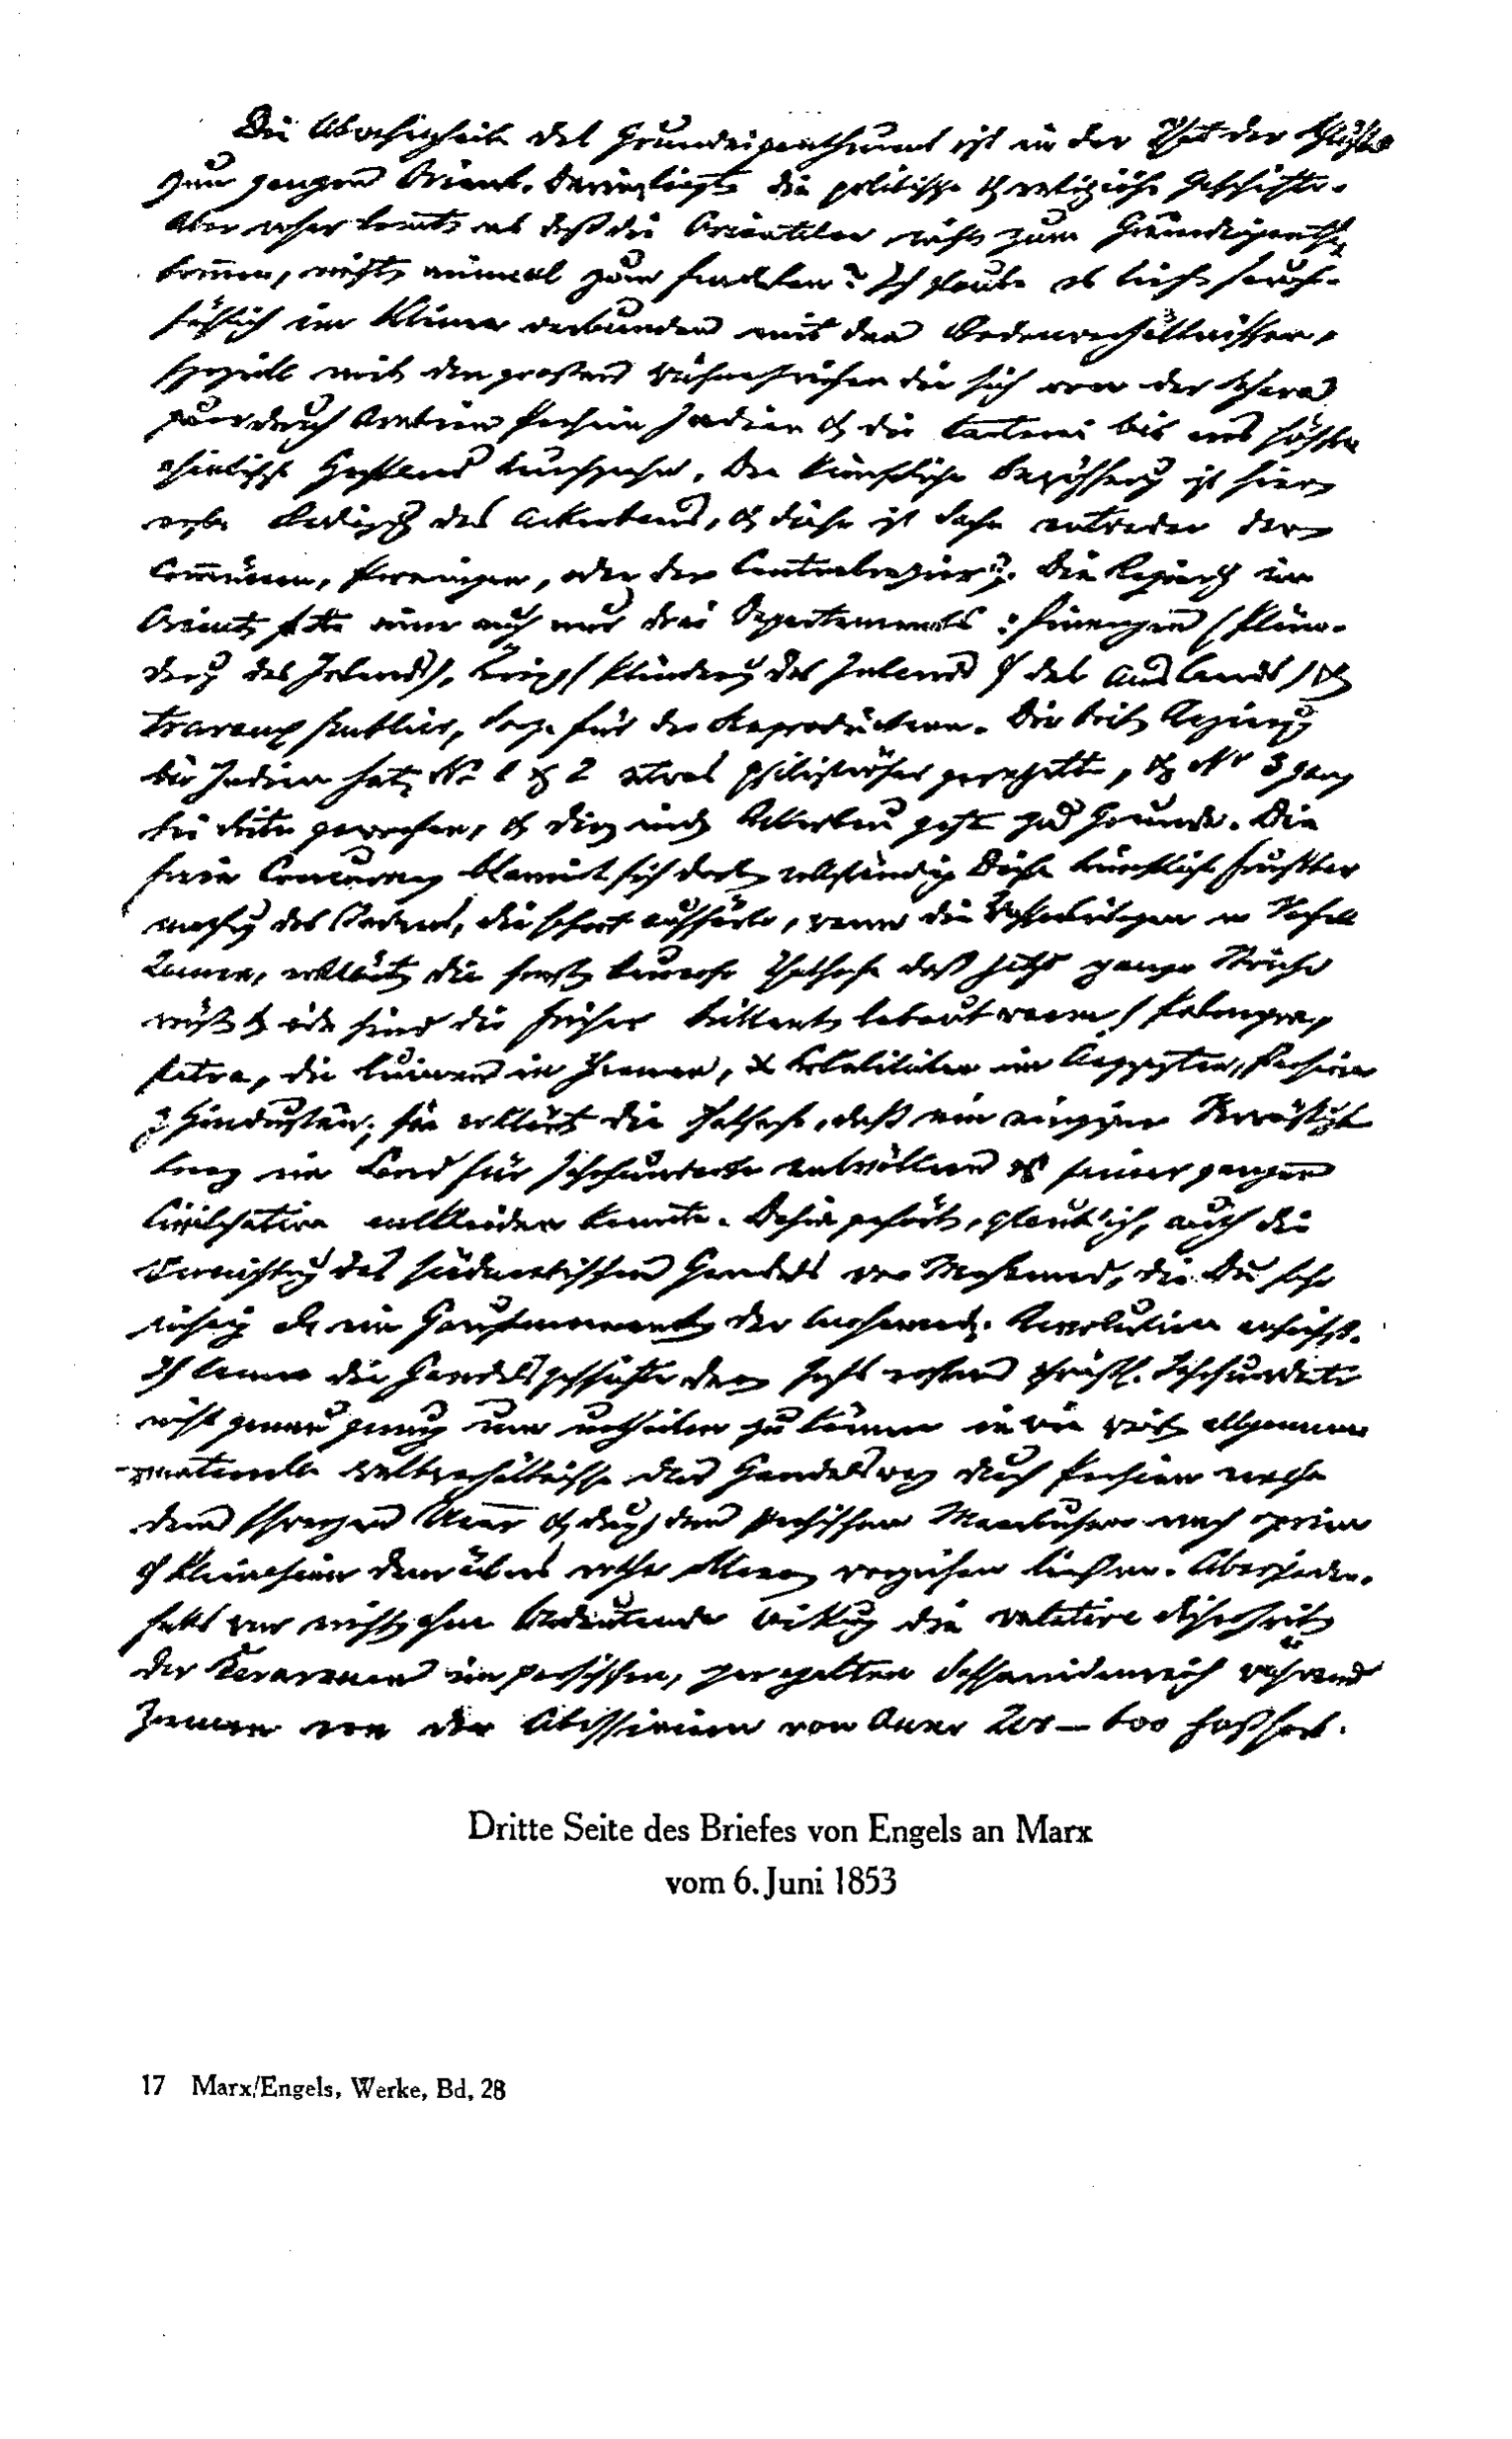 Die Abwesenheit des Grundeigenthums ist in der That der Schlüssel
zum ganzen Orient. Darin liegt die politische & religiöse Geschichte.
Aber woher kommt es daß die Orientalen nicht zum Grundeigenth.
kommen, nicht einmal zum feudalen? Ich glaube es liegt hauptsächlich
im Klima verbunden mit den Bodenverhältnissen,
speziell mit den großen Wüstenstrichen die sich von der Sahara
quer durch Arabien Persien Indien & die Tartarei bis ans höchste
asiatische Hochland durchziehn. Die künstliche Bewässerung ist hier
erste Bedingung des Ackerbaus, & diese ist Sache entweder der
Communen, Provinzen, oder der Centralregierung. Die Regierung im
Orient hatte immer auch nur drei Departements: Finanzen (Plünderung
des Inlands), Krieg (Plünderung des Inlands & des Auslands) &
travaux publics, Sorge für die Reproduktion. Die brit. Regierung
in Indien hat No 1 & 2 etwas philiströser geregelt, & No 3 ganz
bei Seite geworfen, & der ind. Ackerbau geht zu Grunde. Die
freie Concurrenz blamirt sich dort vollständig. Diese künstliche Fruchtbar
machung des Bodens, die sofort aufhörte, wenn die Wasserleitungen in Verfall
kamen, erklärt die sonst kuriose Thatsache daß jetzt ganze Striche
wüst & öde sind die früher brillant bebaut waren (Palmyra,
Petra, die Ruinen in Jemen, x Lokalitäten in Aegypten, Persien
& Hindustan; sie erklärt die Thatsache, daß ein einziger Verwüstungs
krieg ein Land für Jahrhunderte entvölkern & seiner ganzen
Civilisation entkleiden konnte. Dahin gehört, glaub' ich, auch die
Vernichtung des südarabischen Handels vor Mohamed, die Du sehr
richtig als ein Hauptmoment der mohamed. Revolution ansiehst.
Ich kenne die Handelsgeschichte der sechs ersten christl. Jahrhunderte
nicht genau genug um urtheilen zu können in wie weit allgemeine
materielle Weltverhältnisse den Handelsweg durch Persien nach
dem schwarzen Meer & durch den persischen Meerbusen nach Syrien
& Kleinasien dem übers rothe Meer vorziehen ließen. Aber jedenfalls
war nicht ohne bedeutende Wirkung die relative Sicherheit
der Karavanen im persischen, geregelten Sassanidenreich während
Jemen von den Abissiniern von Anno 200–600 fast fort.
Dritte Seite des Briefes von Engels an Marx
vom 6. Juni 1853
17 Marx/Engels, Werke, Bd, 28